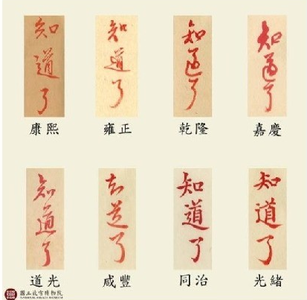 知道了 知道了 知道了 知道了
康熙 雍正 乾隆 嘉慶
知道了 知道了 知道了 知道了
道光 咸豐 同治 光緒
國立故宮博物院